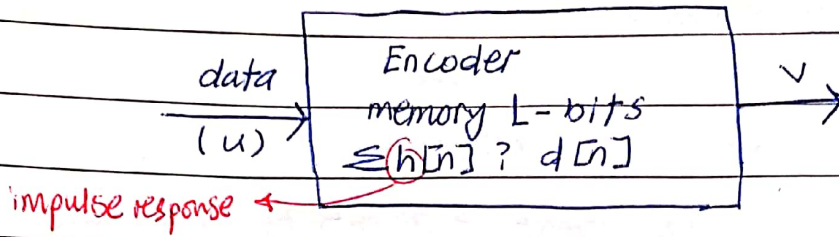 data
(u)
Encoder
memory L-bits
Σh[n] ? d[n]
V
impulse response